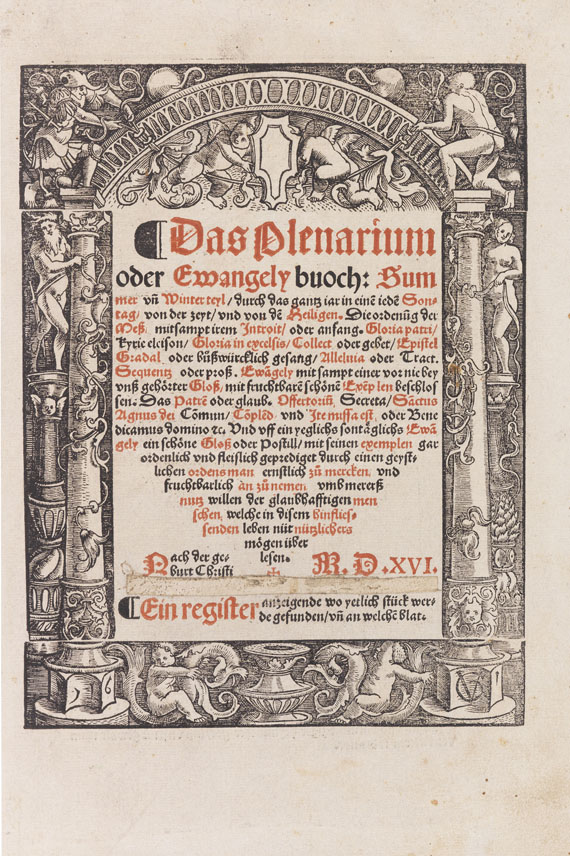 Das Plenarium
oder Ewangely buoch: Sum
mer vñ Winter teyl / durch das gantz iar in einẽ iedẽ Son-
tag / von der zeyt / vnd von dẽ Heiligen. Die ordenũg der
Meß mitsampt irem Introit / oder anfang. Gloria patri /
kyrie eleison / Gloria in excelsis / Collect oder gebet / Epistel
Gradal oder bůßwürcklich gesang / Alleluia oder Tract.
Sequentz oder proß. Ewãgely mit sampt einer vor nie bey
vnß gehörter Gloß / mit fruchtbarẽ schönẽ Exẽplen beschlos
sen. Das Patrẽ oder glaub. Offertoriũ, Secreta / Sanctus
Agnus dei Cõmun / Cõplẽd vnd Ite missa est, oder Bene
dicamus domino ꝛc. Vnd vff ein yeglichs sontãglichs Ewã
gely ein schöne Gloß oder Postill / mit seinen exemplen gar
ordenlich vnd fleislich geprediget durch einen geyst-
lichen ordens man ernstlich zů mercken, vnd
fruchtbarlich an zů nemen vmb mererß
nutz willen der glaubhafftigen men
schen, welche in disem hinflies-
senden leben nüt nützlichers
mögen über
Nach der ge- lesen. M. D. XVI.
burt Christi
Ein register anzeigende wo yetlich stück wer-
de gefunden / vñ an welchẽ blat.